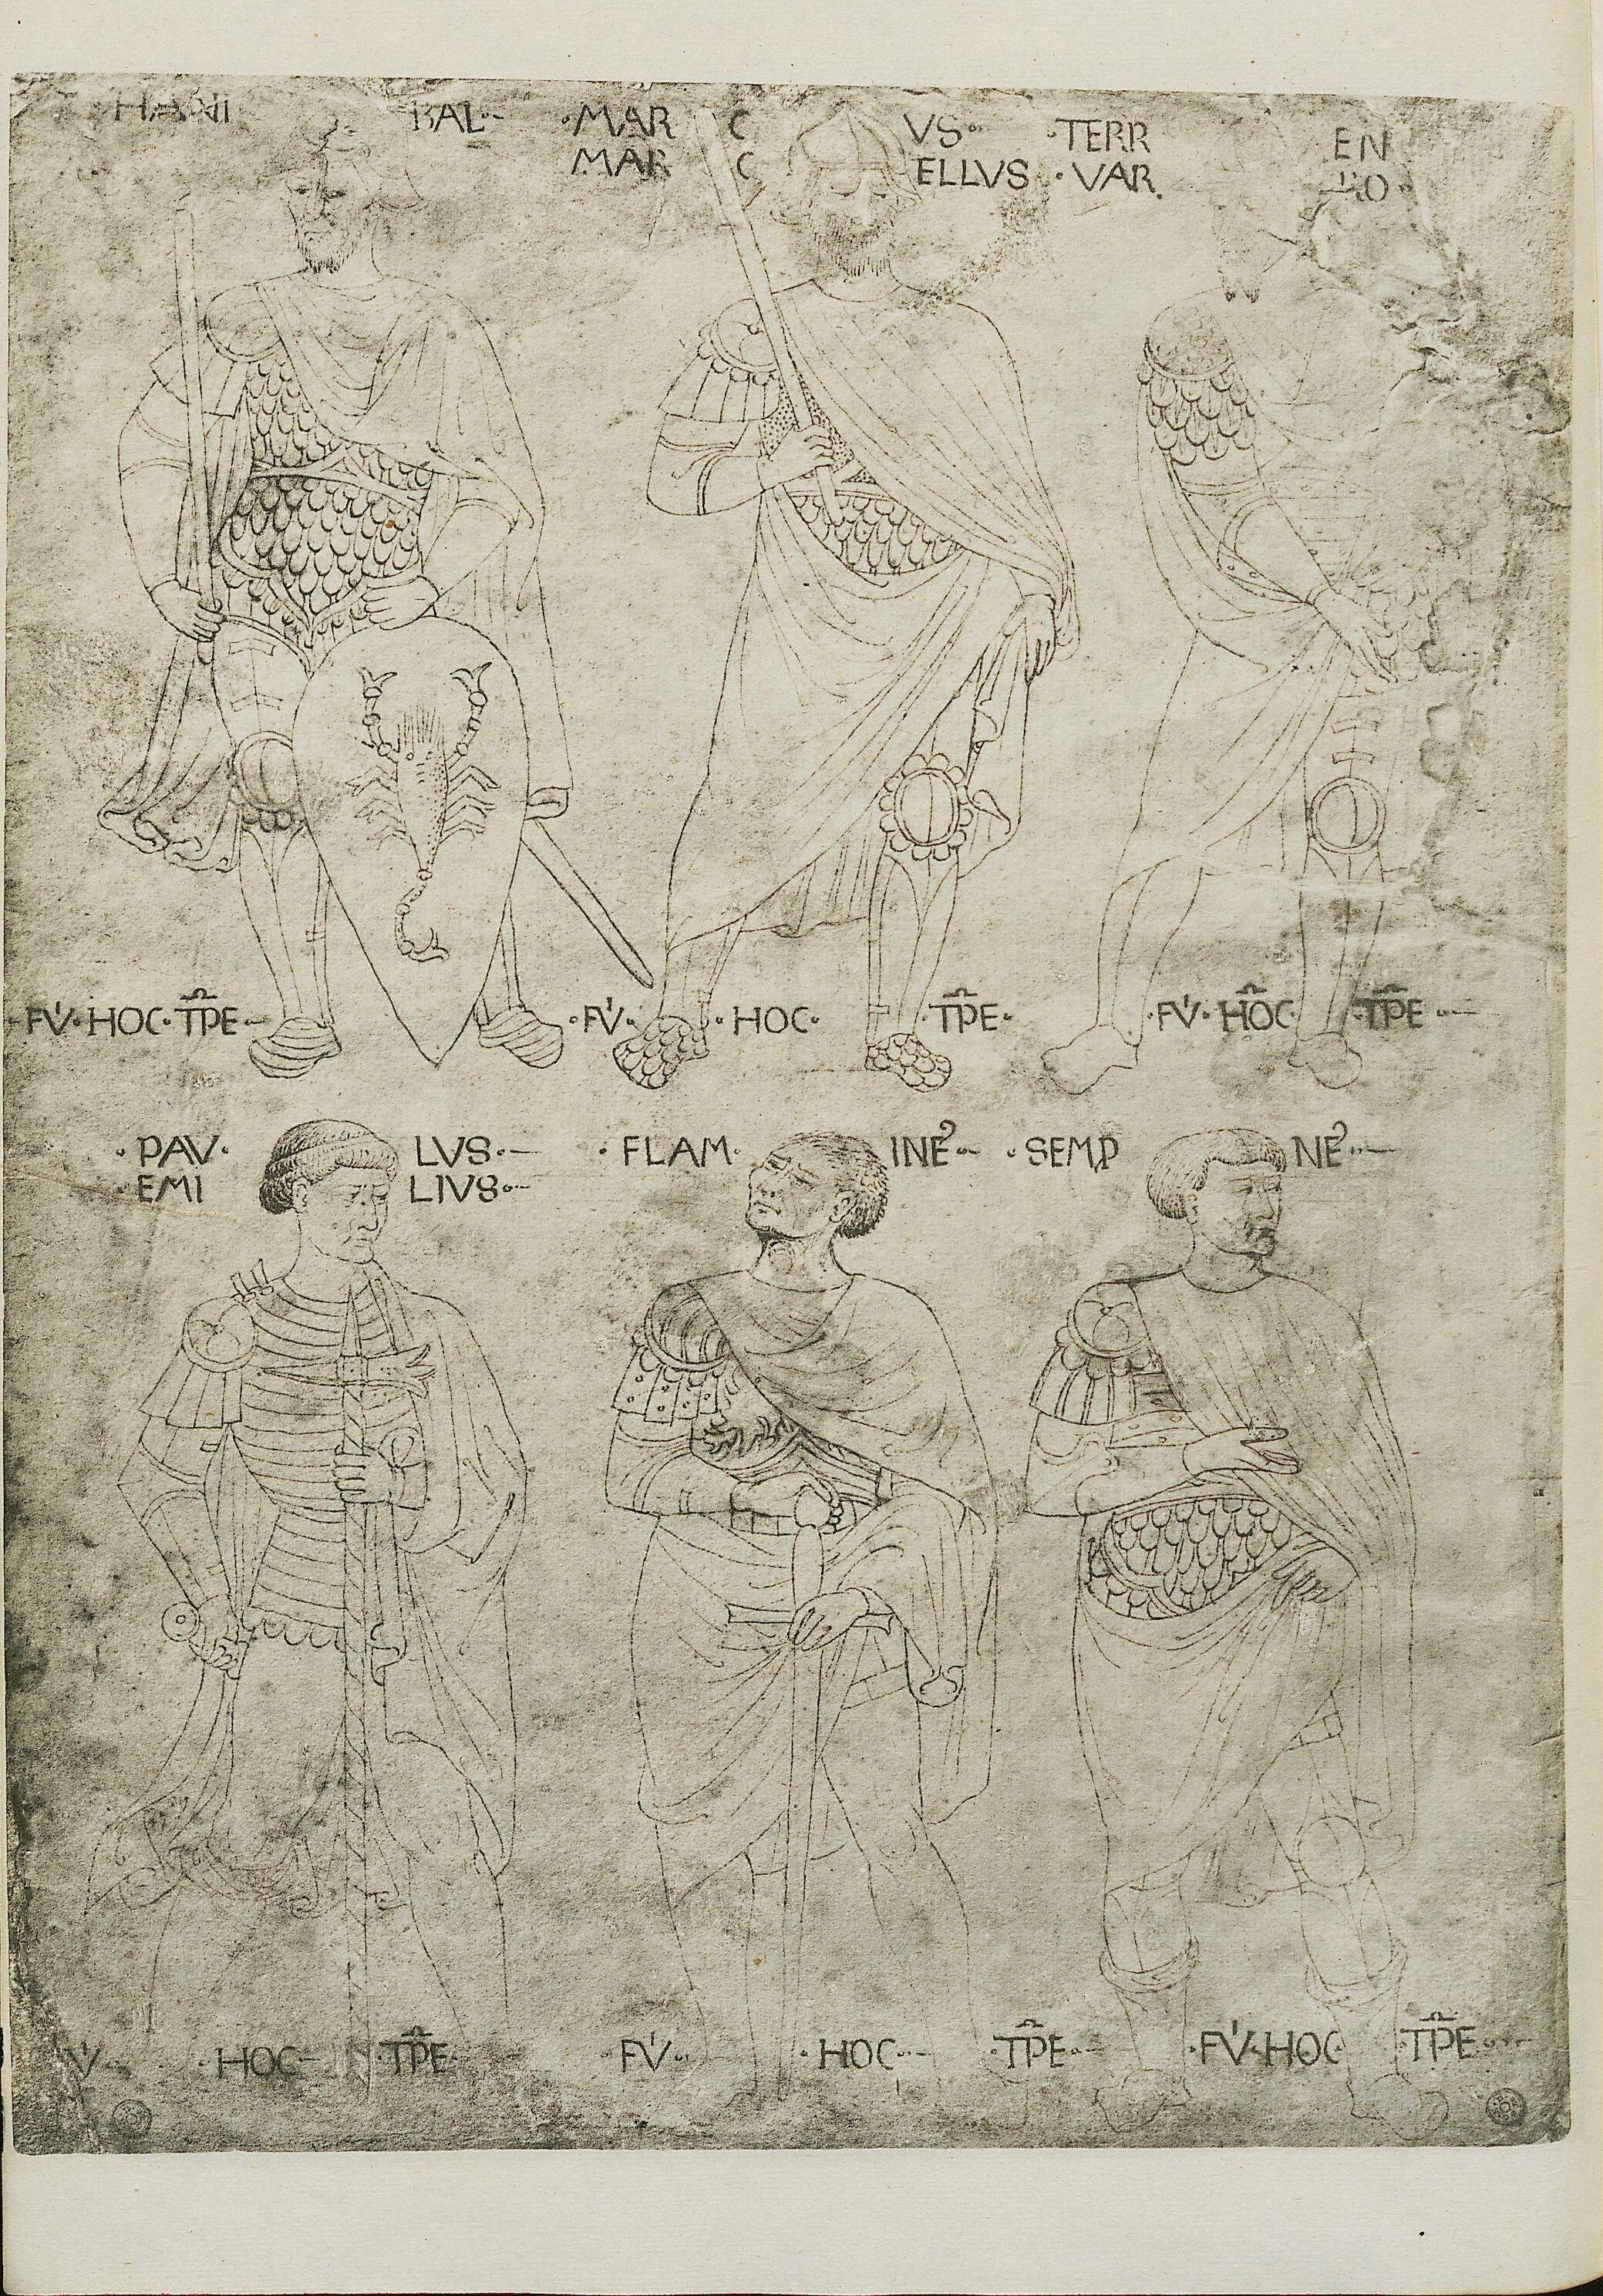 HANI BAL
MAR C VS
MAR C ELLVS
TERR EN
VAR RO
·FV· HOC· TPE
·FV· ·HOC· ·TPE·
·FV· HOC· ·TPE·
·PAV· LVS·
EMI LIVS·
·FLAM· INE
·SEMP NE
V· ·HOC ·TPE·
FV· ·HOC· ·TPE·
·FV·HOC ·TPE·